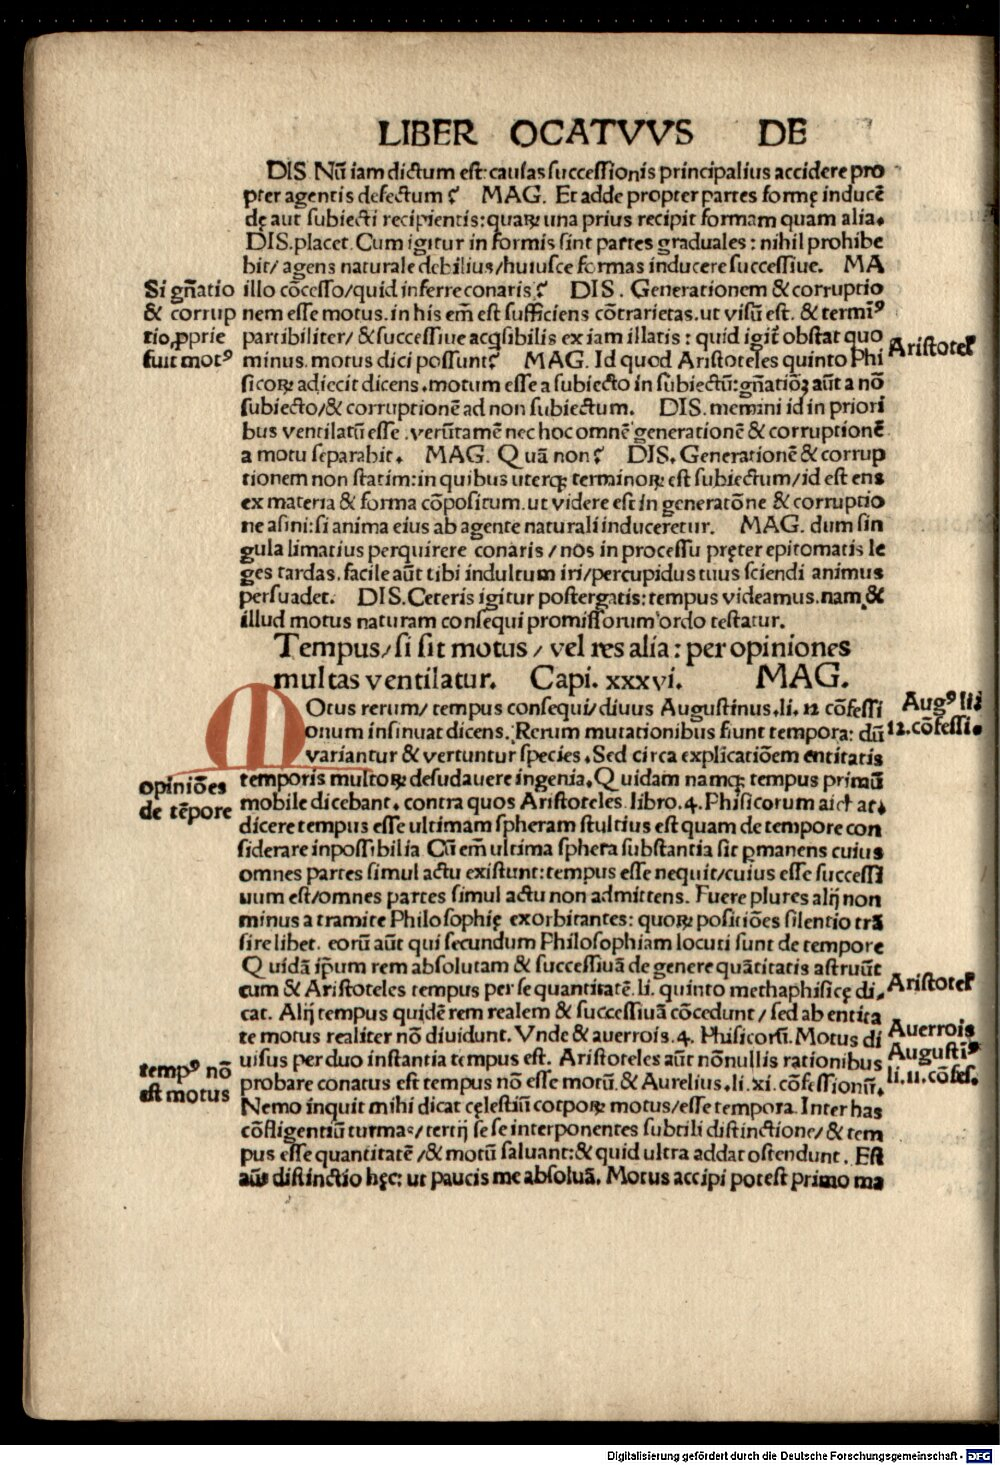 LIBER OCATVVS DE
DIS Nū iam dictum est: causas successionis principalius accidere pro
pter agentis defectum? MAG. Et adde propter partes formę inducē
dę aut subiecti recipientis: quaꝝ una prius recipit formam quam alia.
DIS. placet. Cum igitur in formis sint partes graduales: nihil prohibe
bit/ agens naturale debilius/ huiusce formas inducere successiue. MA
illo cōcesso/ quid inferre conaris? DIS. Generationem & corruptio
nem esse motus. in his em̄ est sufficiens cōtrarietas. ut visū est. & termīꝰ
partibiliter/ & successiue acqsibilis ex iam illatis: quid igit̄ obstat quo
minus. motus dici possunt? MAG. Id quod Aristoteles quinto Phi
sicoꝝ adiecit dicens. motum esse a subiecto in subiectū: gn̄atiōꝫ aūt a nō
subiecto/ & corruptionē ad non subiectum. DIS. memini id in priori
bus ventilatū esse. verūtamē nec hoc omnē generationē & corruptionē
a motu separabit. MAG. Quā non? DIS. Generationē & corrup
tionem non statim: in quibus uterqꝫ terminoꝝ est subiectum/ id est ens
ex materia & forma cōpositum. ut videre est in generatōne & corruptio
ne asini: si anima eius ab agente naturali induceretur. MAG. dum sin
gula limatius perquirere conaris/ nos in processu pręter epitomatis le
ges tardas. facile aūt tibi indultum iri/ percupidus tuus sciendi animus
persuadet. DIS. Ceteris igitur postergatis: tempus videamus. nam &
illud motus naturam consequi promissorum ordo testatur.
Si gn̄atio
& corrup
tio ꝓprie
sunt motꝰ
Aristotel
Tempus/ si sit motus/ vel res alia: per opiniones
multas ventilatur. Capi. xxxvi. MAG.
MOtus rerum/ tempus consequi/ diuus Augustinus. li. 12 cōfessi
onum insinuat dicens. Rerum mutationibus fiunt tempora: dū
variantur & vertuntur species. Sed circa explicatiōem entitatis
temporis multoꝝ desudauere ingenia. Quidam namqꝫ tempus primū
mobile dicebant. contra quos Aristoteles libro. 4. Phisicorum aict at.
dicere tempus esse ultimam spheram stultius est quam de tempore con
siderare inpossibilia Cū em̄ ultima sphera substantia sit ꝑmanens cuius
omnes partes simul actu existunt: tempus esse nequit/ cuius esse successi
uum est/ omnes partes simul actu non admittens. Fuere plures alij non
minus a tramite Philosophię exorbitantes: quoꝝ positiōes silentio trā
sire libet. eorū aūt qui secundum Philosophiam locuti sunt de tempore
Quidā ip̄um rem absolutam & successiuā de genere quātitatis astruūt
cum & Aristoteles tempus per se quantitatē. li. quinto methaphisicę di,
cat. Alij tempus quidē rem realem & successiuā cōcedunt/ sed ab entita
te motus realiter nō diuidunt. Vnde & auerrois. 4. Phisicorū. Motus di
uisus per duo instantia tempus est. Aristoteles aūt nōnullis rationibus
probare conatus est tempus nō esse motū. & Aurelius. li. xi. cōfessionū.
Nemo inquit mihi dicat cęlestiū corpoꝝ motus/ esse tempora. Inter has
cōfligentiū turmas/ tertij se se interponentes subtili distinctione/ & tem
pus esse quantitatē/ & motū saluant: & quid ultra addat ostendunt. Est
aūt distinctio hęc: ut paucis me absoluā. Motus accipi potest primo ma
Augꝰ li
12. cōfessi.
opiniōes
de tēpore
Aristotel
Auerrois
Augustīꝰ
li. 11. cōfes.
tempꝰ nō
est motus
Digitalisierung gefördert durch die Deutsche Forschungsgemeinschaft - DFG